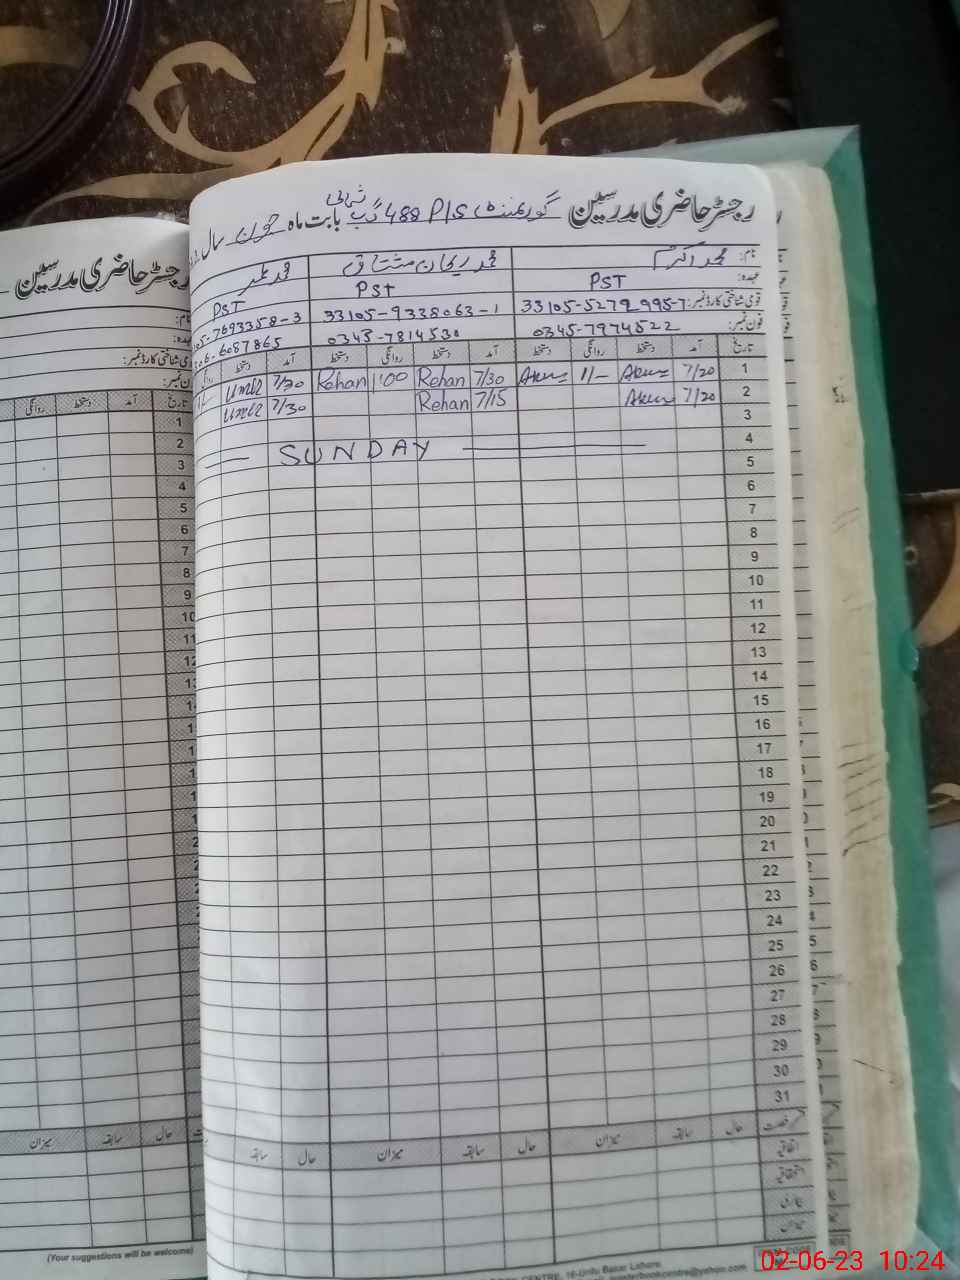 رجسٹر حاضری مدرسین گورنمنٹ P/S 488 گ ب شمالی بابت ماہ جون سال
نام: محمد اکرم محمد ریحان مشتاق محمد عمر
عہدہ: PST PST PST
قومی شناختی کارڈ نمبر: 33105-5279995-7 33105-9338063-1 05-7693358-3
فون نمبر: 0345-7974522 0343-7814530 06-6087865
تاریخ آمد دستخط روانگی دستخط آمد دستخط روانگی دستخط آمد دستخط
1 7/20 Akram 1/- Akram 7/30 Rehan 1:00 Rehan 7/30 Umar 1/-
2 7/20 Akram 7/15 Rehan 7/30 Umar
3
4 SUNDAY
5
6
7
8
9
10
11
12
13
14
15
16
17
18
19
20
21
22
23
24
25
26
27
28
29
30
31
قسم رخصت حال سابقہ میزان حال سابقہ میزان حال سابقہ
اتفاقیہ
استحقاقیہ
بیماری
میزان
CENTRE, 16-Urdu Bazar Lahore.
رجسٹر حاضری مدرسین
نام:
عہدہ:
قومی شناختی کارڈ نمبر:
فون نمبر:
تاریخ آمد دستخط روانگی
1
2
3
4
5
6
7
8
9
10
11
حال سابقہ میزان
(Your suggestions will be welcome)
02-06-23 10:24